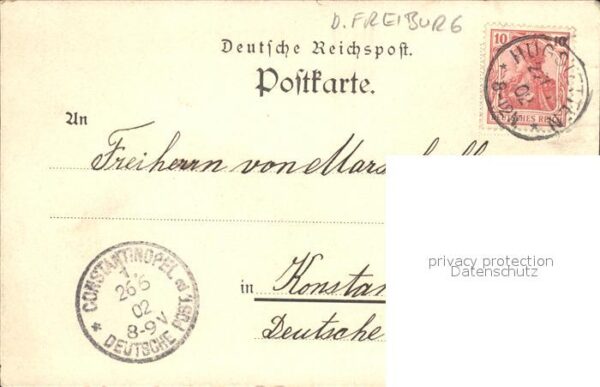 D. FREIBURG
Deutsche Reichspost.
Postkarte.
10
DEUTSCHES REICH
HUGSTETTEN
02
8-9 V
An
Freiherrn von Marschall
privacy protection
Datenschutz
CONSTANTINOPEL 1
26 6
02
8-9 V
DEUTSCHE POST
in Konstan
Deutsche